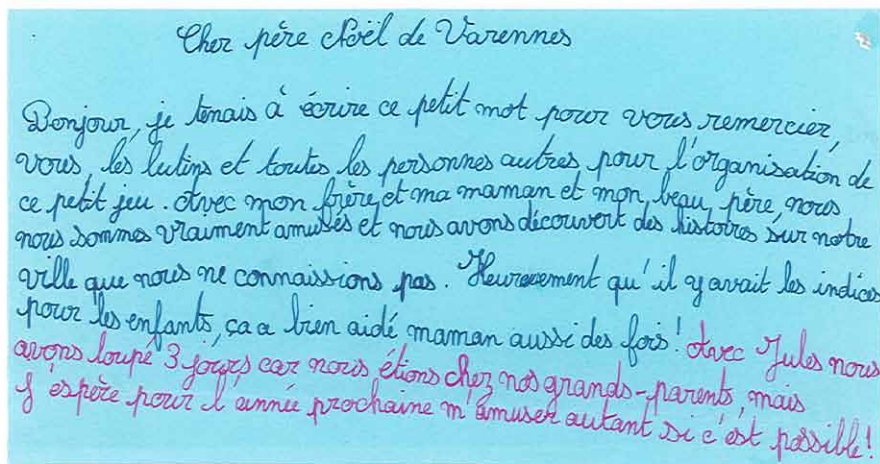 Cher père Noël de Varennes
Bonjour, je tenais à écrire ce petit mot pour vous remercier,
vous, les lutins et toutes les personnes autres pour l'organisation de
ce petit jeu. Avec mon frère et ma maman et mon beau père, nous
nous sommes vraiment amusés et nous avons découvert des histoires sur notre
ville que nous ne connaissions pas. Heurevement qu'il y avait les indices
pour les enfants, ça a bien aidé maman aussi des fois! Avec Jules nous
avons loupé 3 jours car nous étions chez nos grands-parents, mais
j'éspère pour l'année prochaine m'amuser autant si c'est possible!